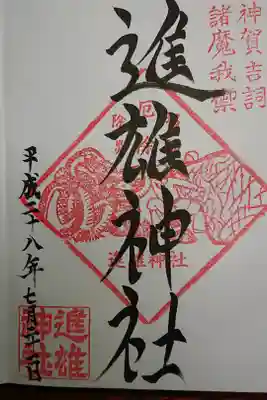 神賀吉詞
諸魔我禦
進雄神社
厄除
進雄神社
平成二十八年七月三十一日
進雄
神社